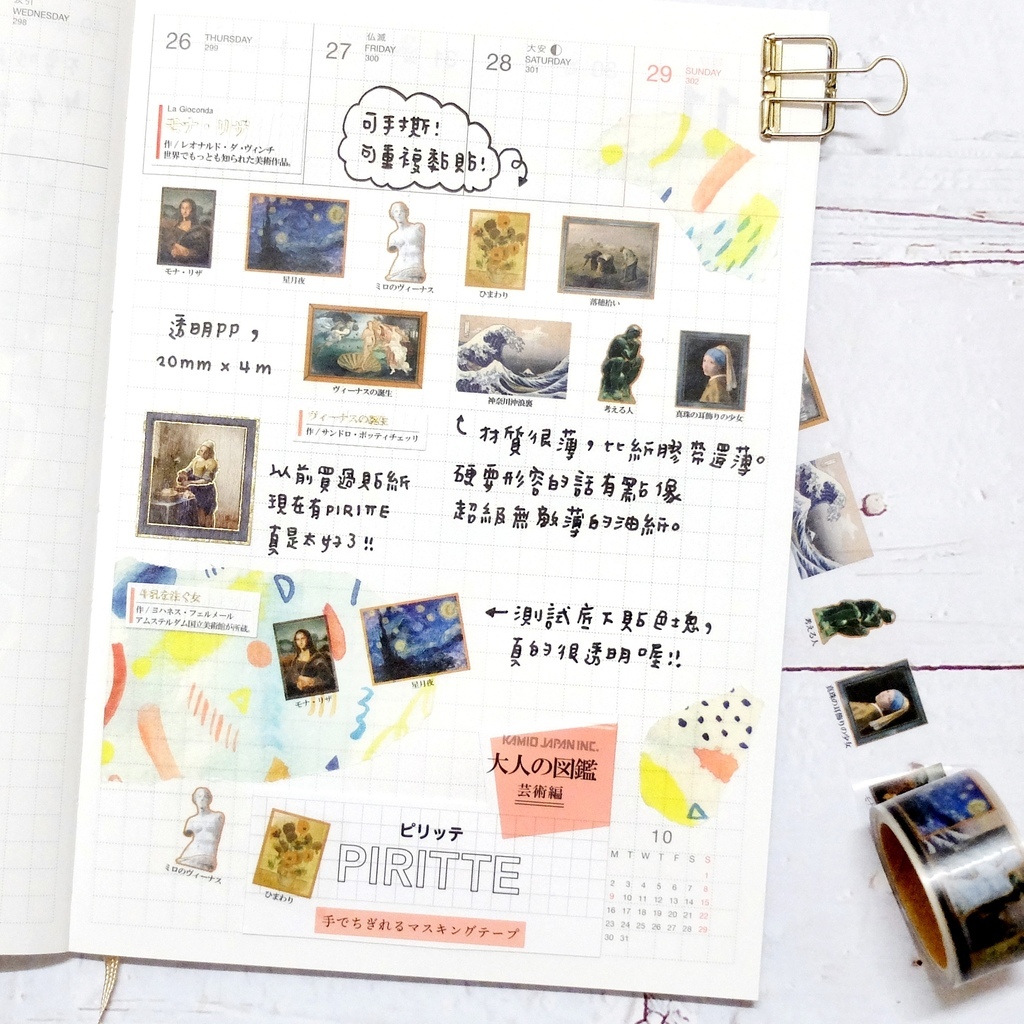 WEDNESDAY
298
26 THURSDAY
299
仏滅
27 FRIDAY
300
大安
28 SATURDAY
301
29 SUNDAY
302
La Gioconda
モナ・リザ
作/レオナルド・ダ・ヴィンチ
世界でもっとも知られた美術作品。
可手撕!
可重複黏貼!
モナ・リザ
星月夜
ミロのヴィーナス
ひまわり
落穂拾い
透明PP,
20mm x 4m
ヴィーナスの誕生
神奈川沖浪裏
考える人
真珠の耳飾りの少女
ヴィーナスの誕生
作/サンドロ・ボッティチェッリ
材質很薄,比紙膠帶還薄。
硬要形容的話有點像
超級無敵薄的油紙。
以前買過貼紙
現在有PIRITTE
真是太好了!!
牛乳を注ぐ女
作/ヨハネス・フェルメール
アムステルダム国立美術館が所蔵。
モナ・リザ
星月夜
←測試底下貼色塊,
真的很透明喔!!
KAMIO JAPAN INC.
大人の図鑑
芸術編
ミロのヴィーナス
ひまわり
ピリッテ
PIRITTE
手でちぎれるマスキングテープ
10
M T W T F S S
1
2 3 4 5 6 7 8
9 10 11 12 13 14 15
16 17 18 19 20 21 22
23 24 25 26 27 28 29
30 31
考える人
真珠の耳飾りの少女